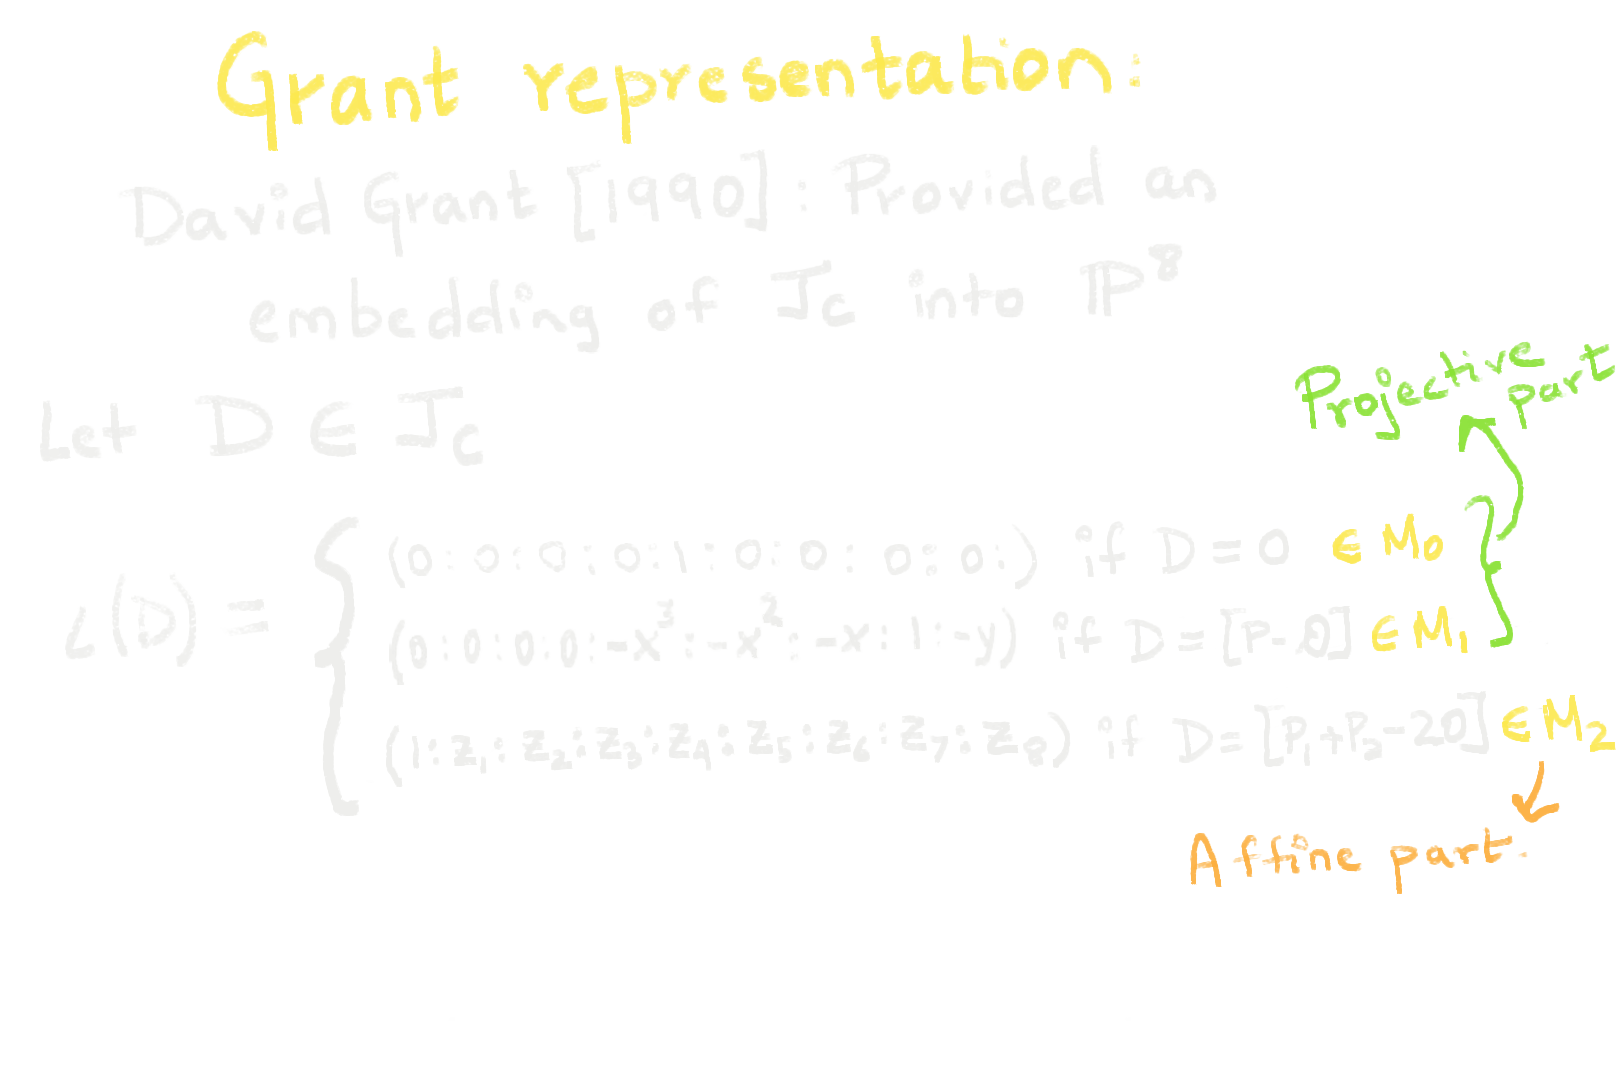 Grant representation:
David Grant [1990]: Provided an
embedding of J_C into ℙ^8
Projective part
Let D ∈ J_C
L(D) = {
(0:0:0:0:1:0:0:0:0:) if D = 0 ∈ M_0
(0:0:0:0:-x^3:-x^2:-x:1:-y) if D = [P-O] ∈ M_1
(1:z_1:z_2:z_3:z_4:z_5:z_6:z_7:z_8) if D = [P_1+P_2-2O] ∈ M_2
Affine part.